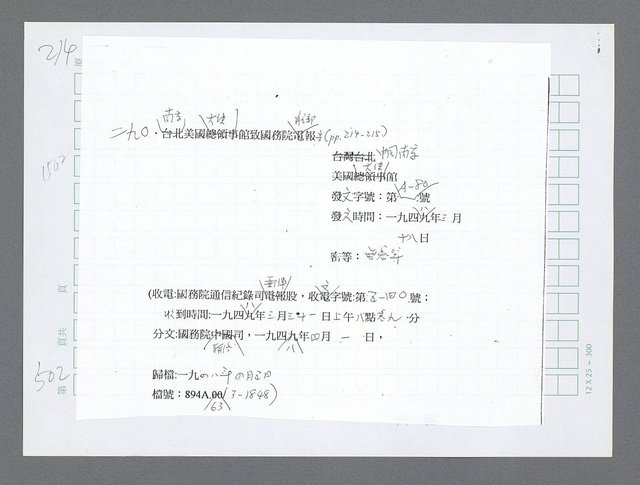 214
原
南京 大使 郵郵
二九〇、台北美國總領事館致國務院電報(pp.214-215)
台灣台北 中國南京
大使
美國總領事館
A-80
發文字號：第 號
八
發文時間：一九四九年三月
十八日
密等：
1502
郵件
(收電:國務院通信紀錄司電報股，收電字號:第三一四〇號：
八
收到時間:一九四九年三月三十一日上午八點 分
分文:國務院中國司，一九四九年四月一日，
八
歸檔:一九四八年四月五日
檔號：894A.00/3-1848)
63
頁
頁共
502
第
12 X 25 = 300